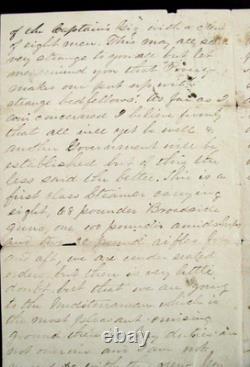 of the Captain's Gig with a crew
of eight men. This may all seem
very strange to you all but let
me remind you that "Poverty
makes one put up with
strange bedfellows". As far as I
am concerned I believe firmly
that all will yet be well &
another Government will be
established but of this the
less said the better. This is a
first class Steamer carrying
eight, 68 pounder Broadside
guns, one pounder amidships
and two pound rifles fore
and aft, we are under sealed
orders, but there is very little
doubt but that we are going
to the Mediteranean which is
the most pleasant cruising
around there. My duties are
not onerous and I am not
with the